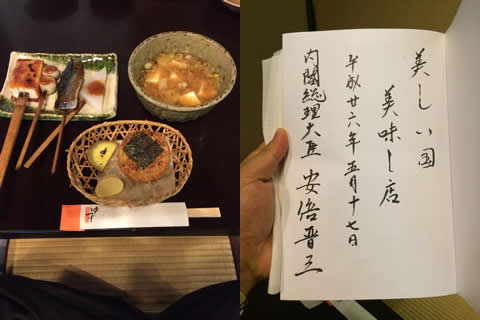 美しい国
美味し店
平成廿六年五月十七日
内閣総理大臣 安倍晋三